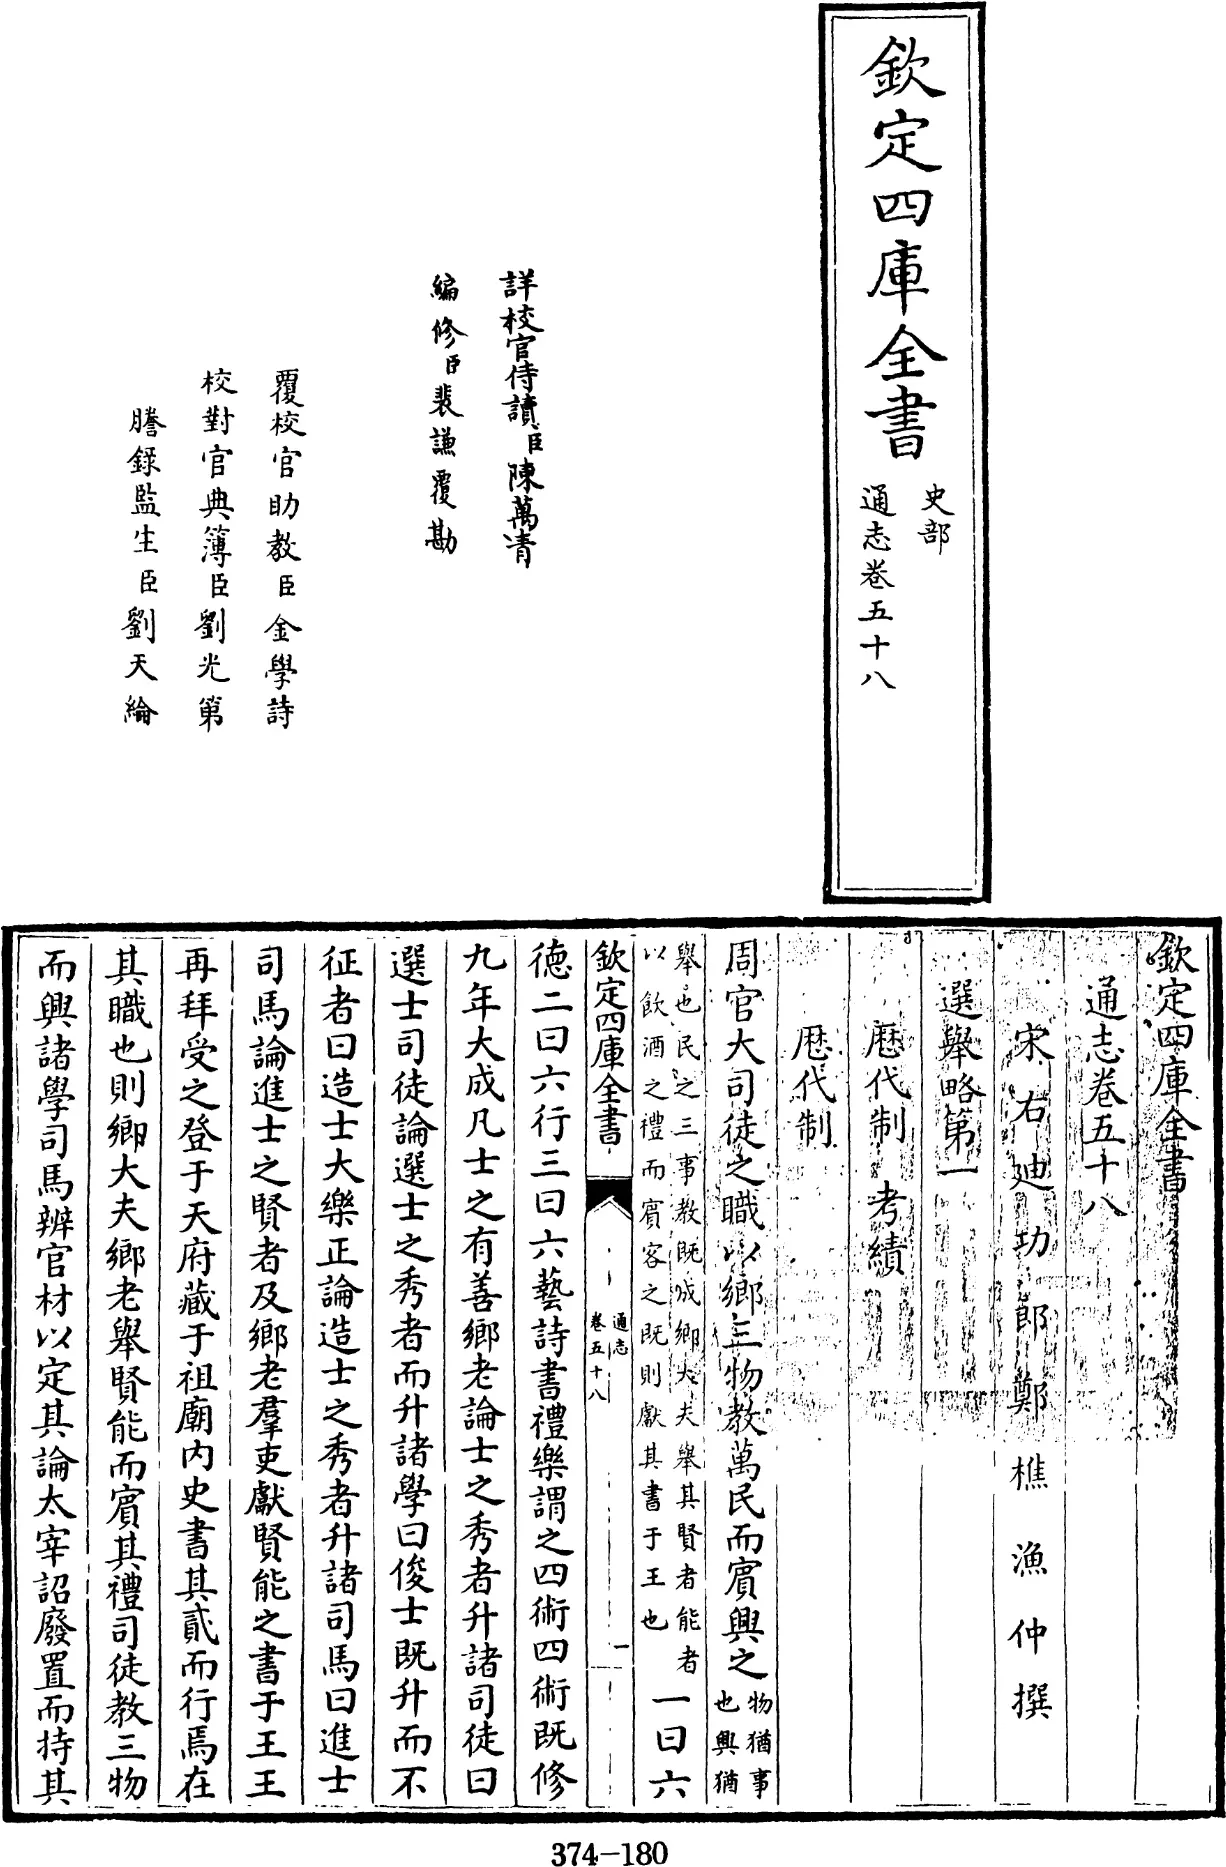 欽定四庫全書
史部
通志卷五十八
詳校官侍讀臣陳萬青
編修臣裴謙覆勘
覆校官助教臣金學詩
校對官典簿臣劉光第
謄錄監生臣劉天綸
欽定四庫全書
通志卷五十八
宋右迪功郎鄭樵漁仲撰
選舉略第一
歴代制 考績
歴代制
周官大司徒之職以鄉三物教萬民而賓興之物猶事也興猶
舉也民之三事教既成鄉大夫舉其賢者能者以飲酒之禮而賓客之既則獻其書于王也一曰六
欽定四庫全書 通志卷五十八 一
德二曰六行三曰六藝詩書禮樂謂之四術四術既修
九年大成凡士之有善鄉老論士之秀者升諸司徒曰
選士司徒論選士之秀者而升諸學曰俊士既升而不
征者曰造士大樂正論造士之秀者升諸司馬曰進士
司馬論進士之賢者及鄉老羣吏獻賢能之書于王王
再拜受之登于天府藏于祖廟内史書其貳而行焉在
其職也則鄉大夫鄉老舉賢能而賓其禮司徒教三物
而興諸學司馬辨官材以定其論太宰詔廢置而持其
374-180